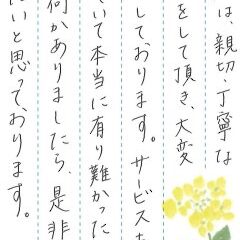 は、親切・丁寧な
をして頂き、大変
しております。サービスも
いて本当に有り難かった
何かありましたら、是非
にいと思っております。